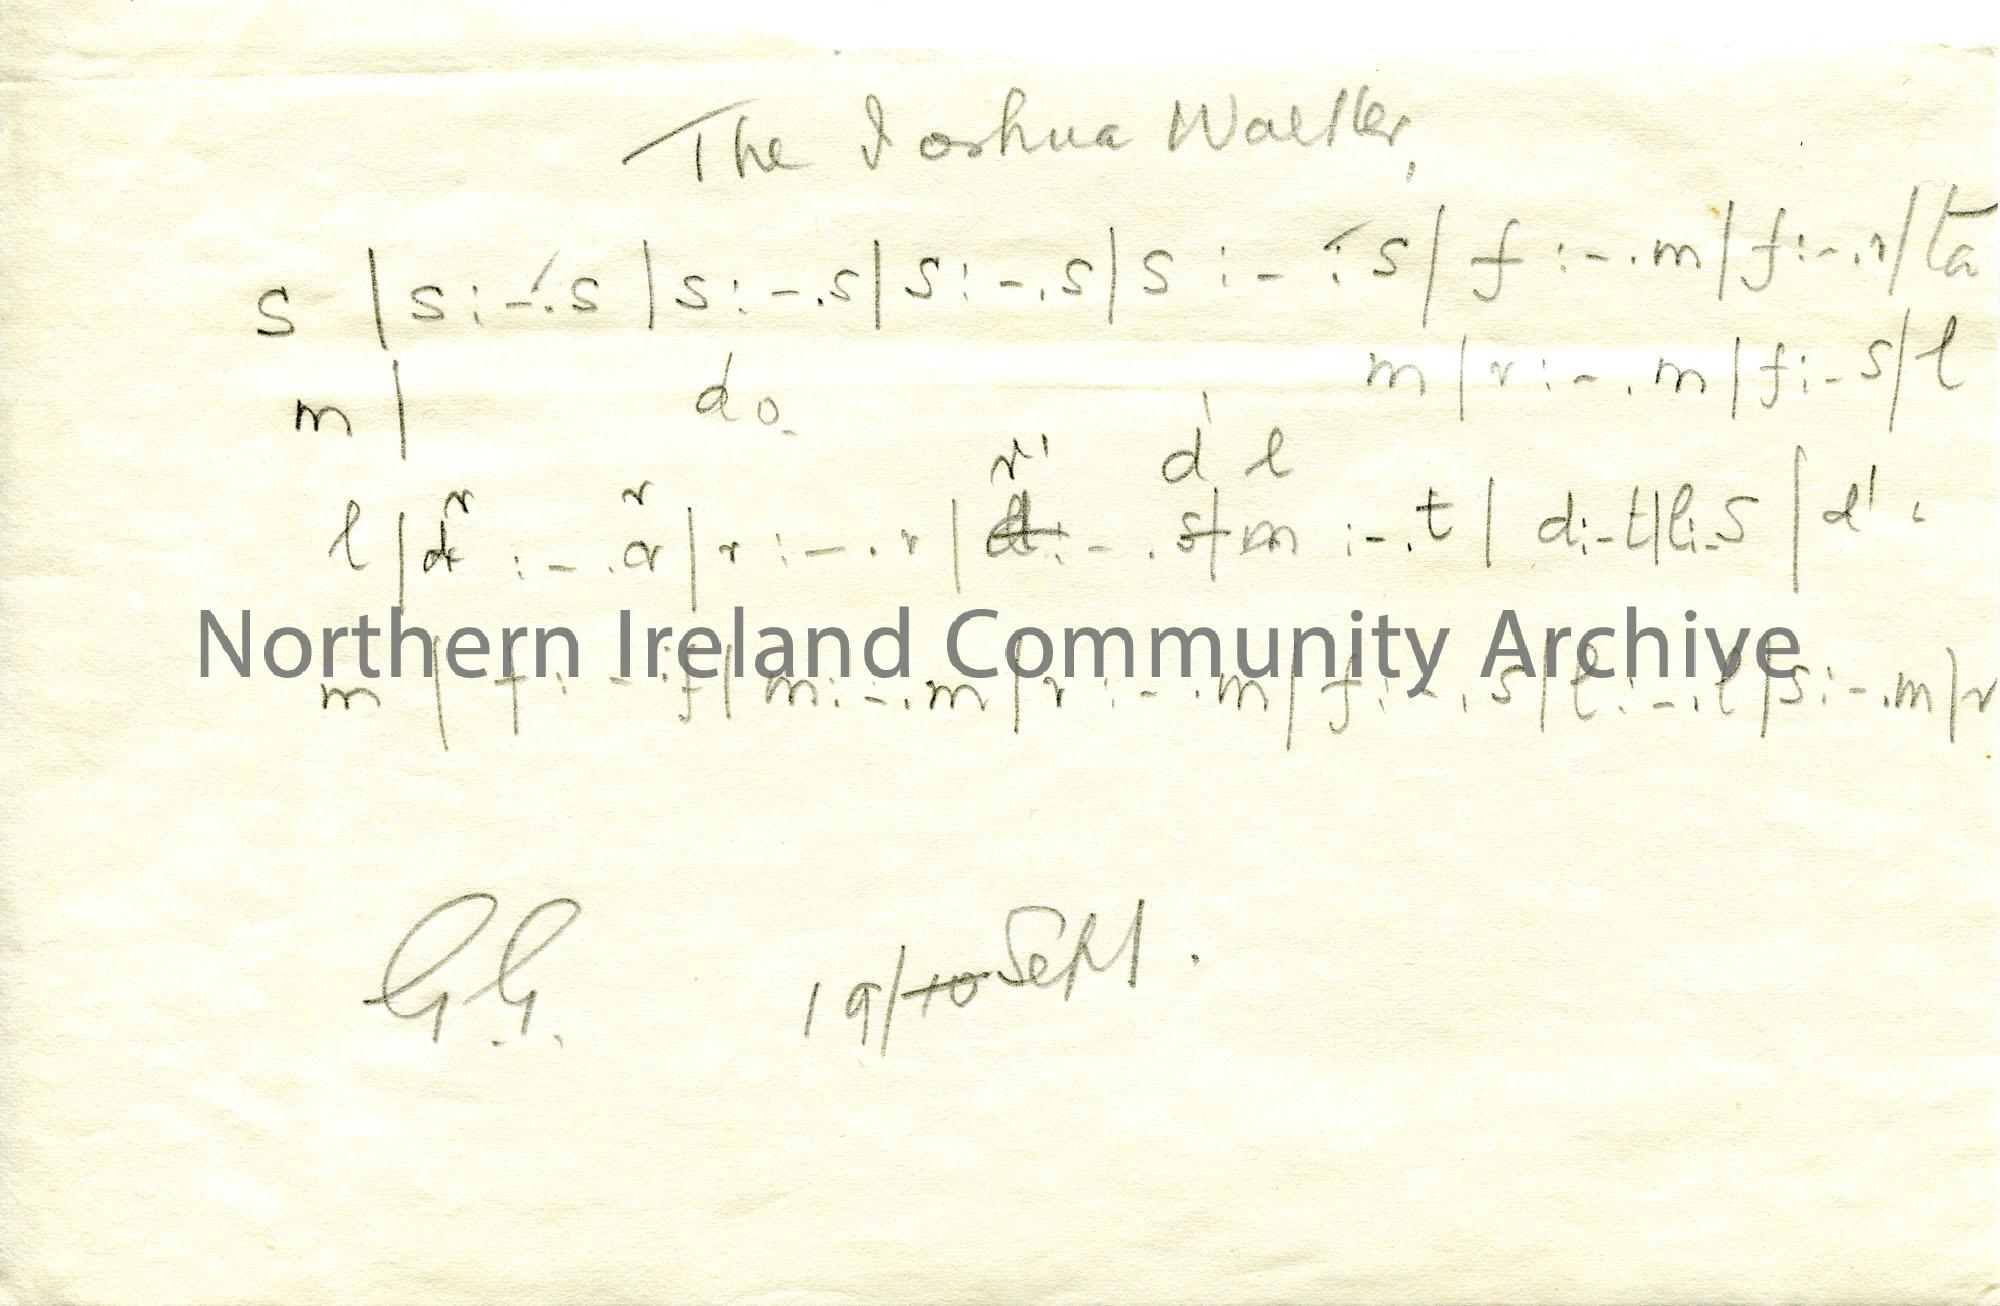 The Joshua Walker,
s | s : - . s | s : - . s | s : - . s | s : - . s | f : - . m | f : - . r | ta
m | do. m | r : - . m | f : - s | l
r' d' l
l | r : - . r | r : - . r | d : - . s | m : - . t | d : - t | l : - s | d' :
Northern Ireland Community Archive
m | f : - . f | m : - . m | r : - . m | f : - . s | l : - . l | s : - . m | r
G.G. 19/10 Sept.